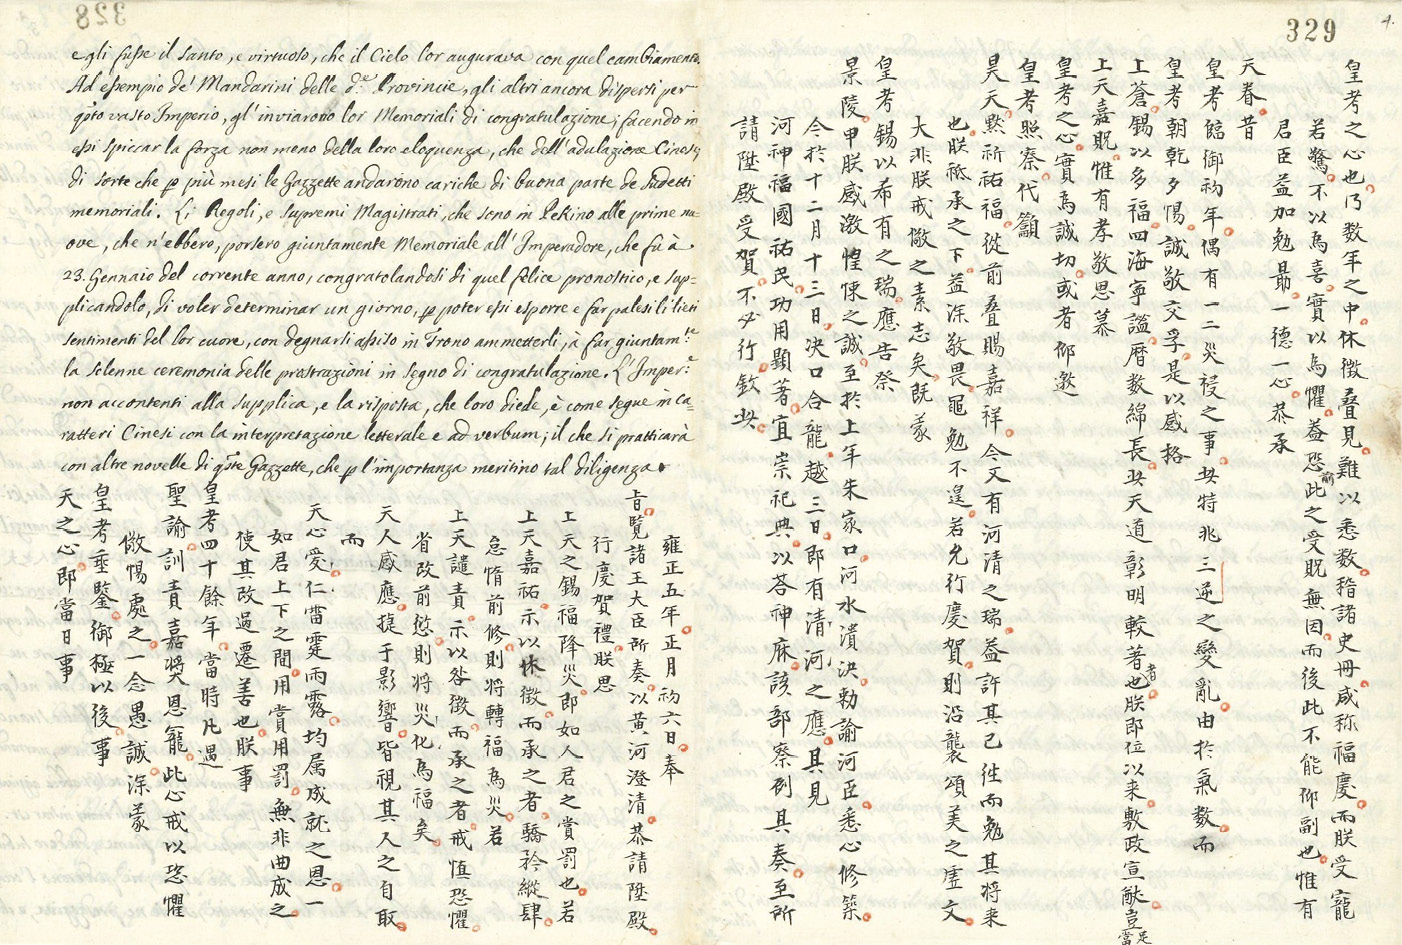 328
e gli fusse il Santo, e virtuoso, che il Cielo lor augurava con quel cambiamento.
Ad esempio de' Mandarini delle d.e Provincie, gli altri ancora dispersi per
q̃to vasto Imperio, gl' inviarono lor Memoriali di congratulazione; facendo in
essi spiccar la forza non meno della loro eloquenza, che dell' adulazione Cinese,
di sorte che ꝑ più mesi le Gazzette andarono cariche di buona parte de Sudetti
memoriali. Li Regoli, e Supremi Magistrati, che sono in Pekino alle prime nu-
ove, che n'ebbero, portero giuntamente Memoriale all' Imperadore, che fù à
23. Gennaio del corrente anno, congratolandosi di quel felice pronostico, e sup-
plicandolo, di voler determinar un giorno, ꝑ poter essi esporre e far palesi li lieti
sentimenti del lor cuore, con degnarsi assiso in Trono ammetterli, à far giuntam.te
la solenne ceremonia delle prostrazioni in segno di congratulazione. L' Imper.e
non accontentì alla supplica, e la risposta, che loro diede, è come segue in ca-
ratteri Cinesi con la interpretazione letterale e ad verbum; il che si pratticarà
con altre novelle di q̃ste Gazzette, che ꝑ l'importanza meritino tal diligenza.
雍正五年正月初六日奉
旨覽諸王大臣所奏以黃河澄清恭請陞殿
行慶賀禮朕思
上天之錫福降災即如人君之賞罰也若
上天嘉祐示以休徵而承之者驕矜縱肆
怠惰前修則將轉福為災若
上天譴責示以咎徵而承之者戒慎恐懼
省改前愆則將災化為福矣
天人感應捷于影響皆視其人之自取
而
天心愛仁雷霆雨露均属成就之恩一
如君上下之間用賞用罰無非曲成之
使其改過遷善也朕事
皇考四十餘年當時凡遇
聖諭訓責嘉奬恩寵此心戒以恐懼
儆惕處之一念愚誠深蒙
皇考垂鑒御極以後事
天之心即當日事
329
4.
皇考之心也乃数年之中休徵叠見難以悉数稽諸史冊咸称福慶而朕受寵
若驚不以為喜實以為懼益恐前此之受貺無因而後此不能仰副也惟有
君臣益加勉勗一德一心恭承
天眷昔
皇考臨御初年偶有一二災祲之事此特兆三逆之變亂由於氣数而
皇考朝乾夕惕誠敬交孚是以感格
上蒼錫以多福四海寧謐曆数綿長此天道彰明較著者也朕即位以来敷政宣猷豈足當
上天嘉貺惟有孝敬思慕
皇考之心實為誠切或者仰邀
皇考照察代籲
昊天黙祈祐福從前叠賜嘉祥今又有河清之瑞益許其已徃而勉其将来
也朕祇承之下益深敬畏黽勉不遑若允行慶賀則沿襲頌美之虛文
大非朕戒儆之素志矣既蒙
皇考錫以希有之瑞應告祭
景陵甲朕感激惶悚之誠至於上年朱家口河水漬決勅諭河臣悉心修築
今於十二月十三日決口合龍越三日即有清河之應且見
河神福國祐民功用顯著宜崇祀典以荅神庥該部察例具奏至所
請陞殿受賀不必行欽此